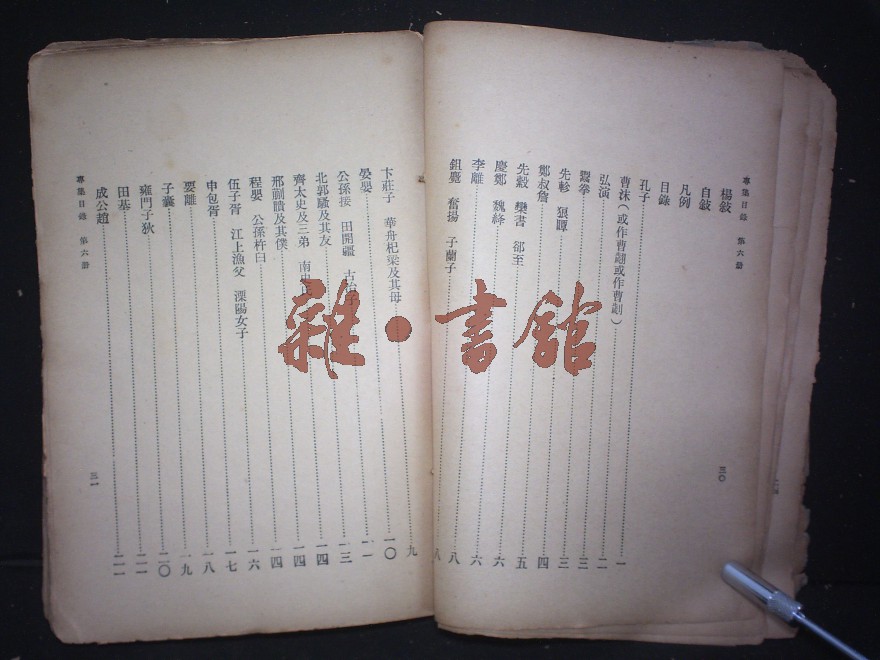 專集目錄 第六册
楊敍
自敍
凡例
目錄
孔子
曹沫(或作曹翽或作曹劌)一
弘演二
鬻拳三
先軫 狼瞫三
鄭叔詹四
先縠 欒書 郤至五
慶鄭 魏絳六
李離六
鉏麑 奮揚 子蘭子八
八
三〇
九
卞莊子 華舟杞梁及其母一〇
晏嬰一一
公孫接 田開疆 古冶子一三
北郭騷及其友一四
齊太史及三弟 南史氏一四
邢蒯瞶及其僕一四
程嬰 公孫杵臼一六
伍子胥 江上漁父 溧陽女子一七
申包胥一八
要離一九
子囊二〇
雍門子狄二一
田基二一
成公趙二二
專集目錄 第六册
三一
雜·書館